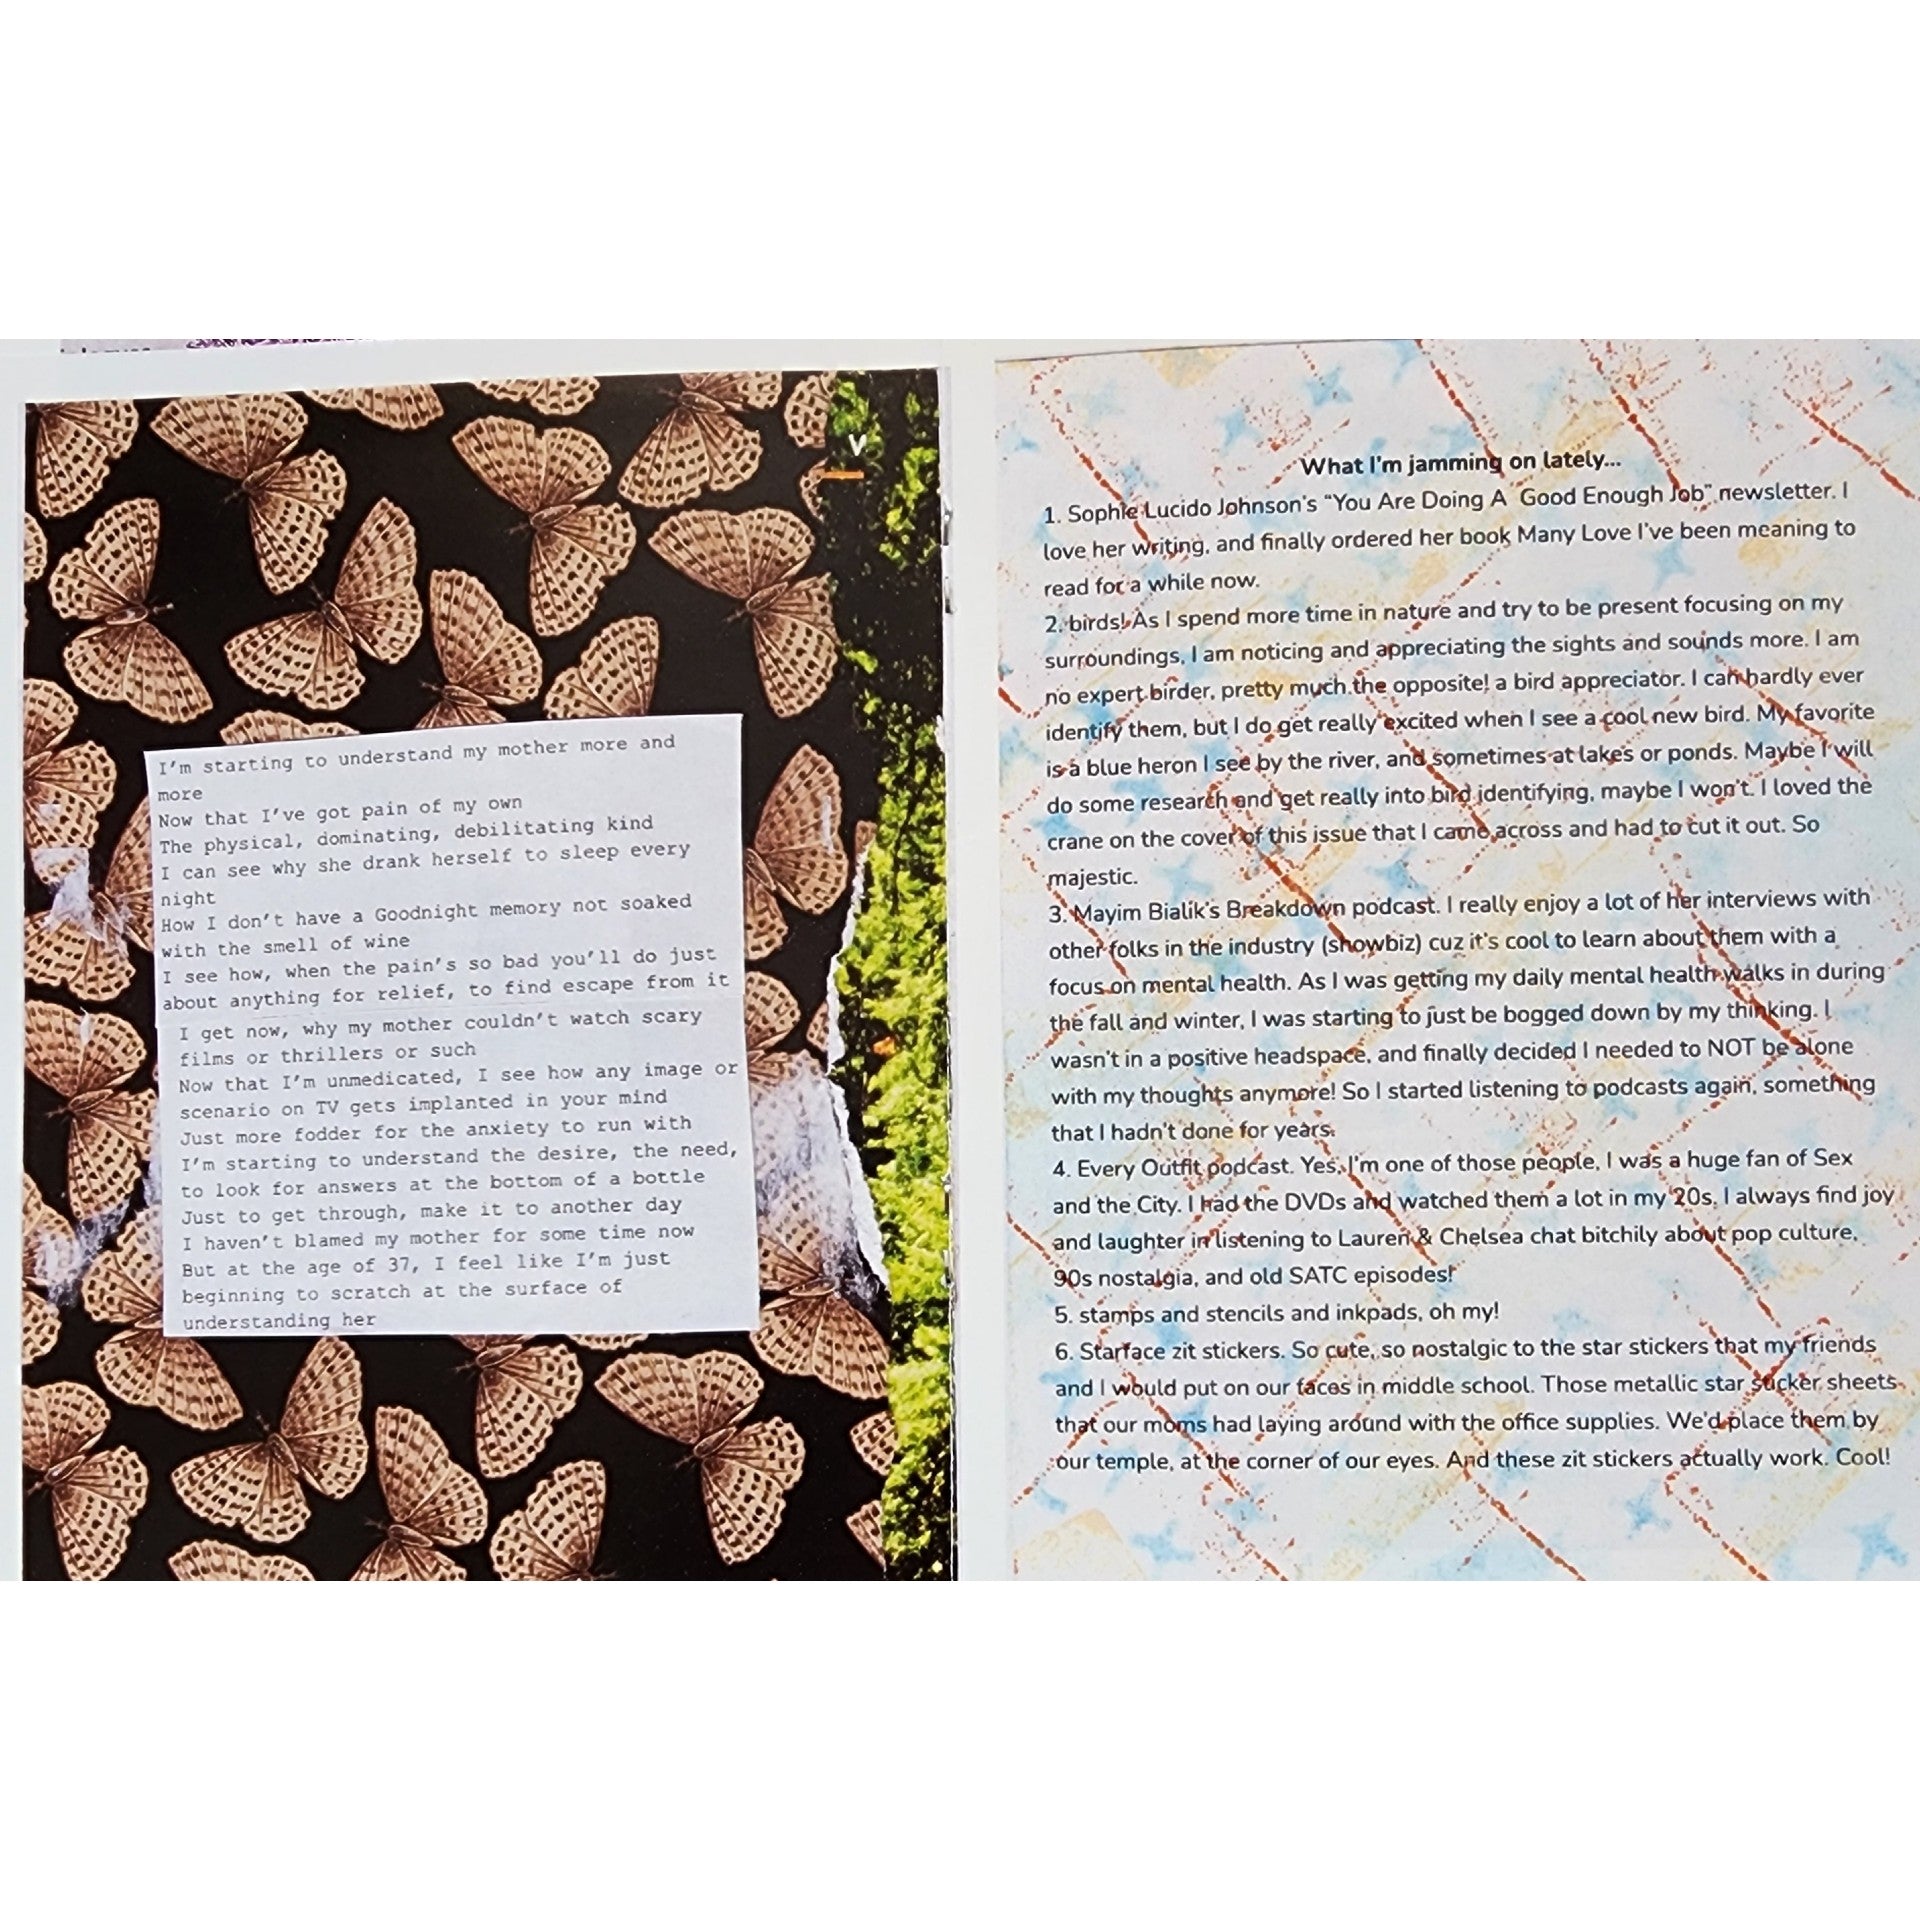 I'm starting to understand my mother more and
more
Now that I've got pain of my own
The physical, dominating, debilitating kind
I can see why she drank herself to sleep every
night
How I don't have a Goodnight memory not soaked
with the smell of wine
I see how, when the pain's so bad you'll do just
about anything for relief, to find escape from it
I get now, why my mother couldn't watch scary
films or thrillers or such
Now that I'm unmedicated, I see how any image or
scenario on TV gets implanted in your mind
Just more fodder for the anxiety to run with
I'm starting to understand the desire, the need,
to look for answers at the bottom of a bottle
Just to get through, make it to another day
I haven't blamed my mother for some time now
But at the age of 37, I feel like I'm just
beginning to scratch at the surface of
understanding her
V
What I'm jamming on lately...
1. Sophie Lucido Johnson's “You Are Doing A Good Enough Job” newsletter. I
love her writing, and finally ordered her book Many Love I've been meaning to
read for a while now.
2. birds! As I spend more time in nature and try to be present focusing on my
surroundings, I am noticing and appreciating the sights and sounds more. I am
no expert birder, pretty much the opposite! a bird appreciator. I can hardly ever
identify them, but I do get really excited when I see a cool new bird. My favorite
is a blue heron I see by the river, and sometimes at lakes or ponds. Maybe I will
do some research and get really into bird identifying, maybe I won't. I loved the
crane on the cover of this issue that I came across and had to cut it out. So
majestic.
3. Mayim Bialik's Breakdown podcast. I really enjoy a lot of her interviews with
other folks in the industry (showbiz) cuz it's cool to learn about them with a
focus on mental health. As I was getting my daily mental health walks in during
the fall and winter, I was starting to just be bogged down by my thinking. I
wasn't in a positive headspace, and finally decided I needed to NOT be alone
with my thoughts anymore! So I started listening to podcasts again, something
that I hadn't done for years.
4. Every Outfit podcast. Yes, I'm one of those people, I was a huge fan of Sex
and the City. I had the DVDs and watched them a lot in my '20s. I always find joy
and laughter in listening to Lauren & Chelsea chat bitchily about pop culture,
90s nostalgia, and old SATC episodes!
5. stamps and stencils and inkpads, oh my!
6. Starface zit stickers. So cute, so nostalgic to the star stickers that my friends
and I would put on our faces in middle school. Those metallic star sticker sheets
that our moms had laying around with the office supplies. We'd place them by
our temple, at the corner of our eyes. And these zit stickers actually work. Cool!